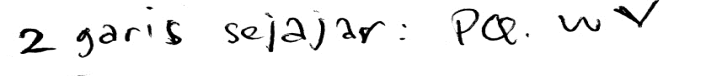 2 garis sejajar: PQ. W ✓